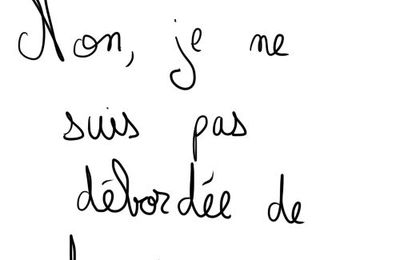 Non, je ne
suis pas
débordée de